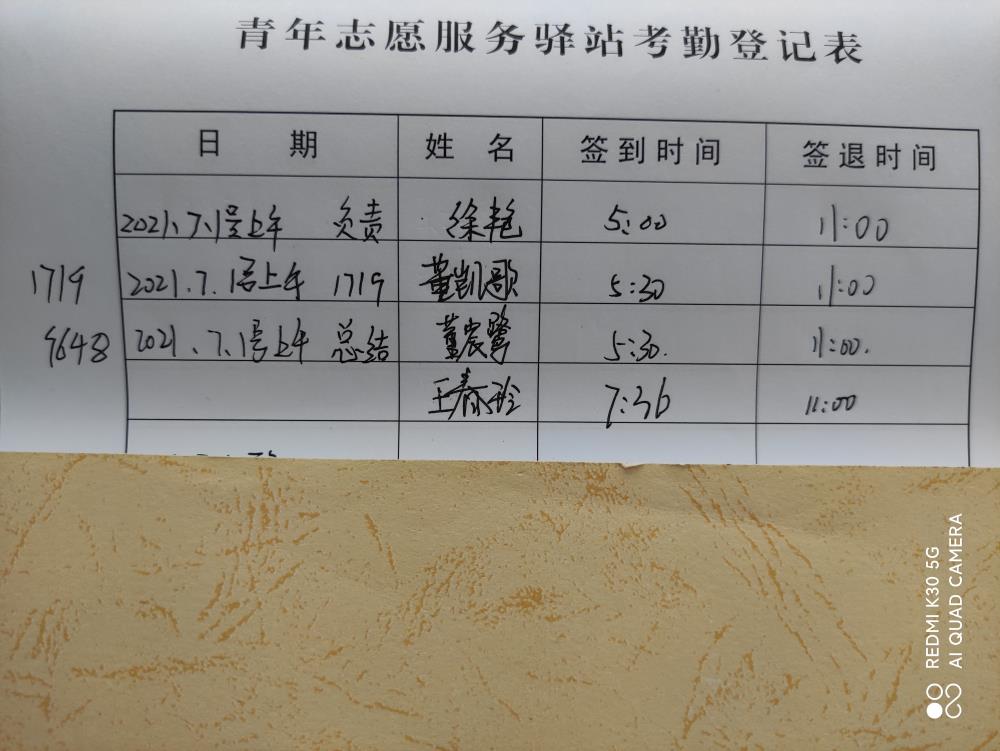 青年志愿服务驿站考勤登记表
日 期 姓 名 签到时间 签退时间
2021.7.1号上午 负责 徐艳 5:00 11:00
1719 2021.7.1号上午 1719 董凯歌 5:30 11:00
9648 2021.7.1号上午 总结 董宸 5:30. 11:00.
王春玲 7:36 11:00
REDMI K30 5G
AI QUAD CAMERA